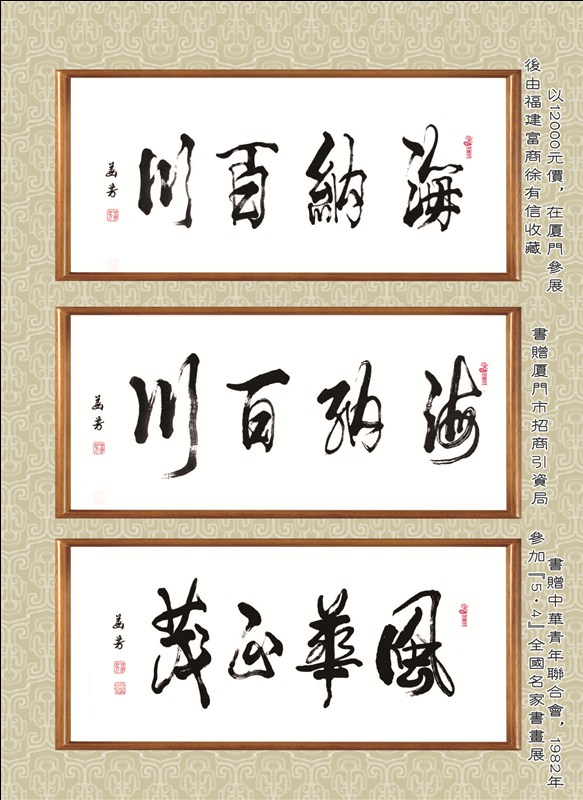 海納百川
美芳
以12000元價，在厦門參展
後由福建富商徐有信收藏
海納百川
美芳
書贈厦門市招商引資局
風華正茂
美芳
書贈中華青年聯合會，1982年
參加『5·4』全國名家書畫展